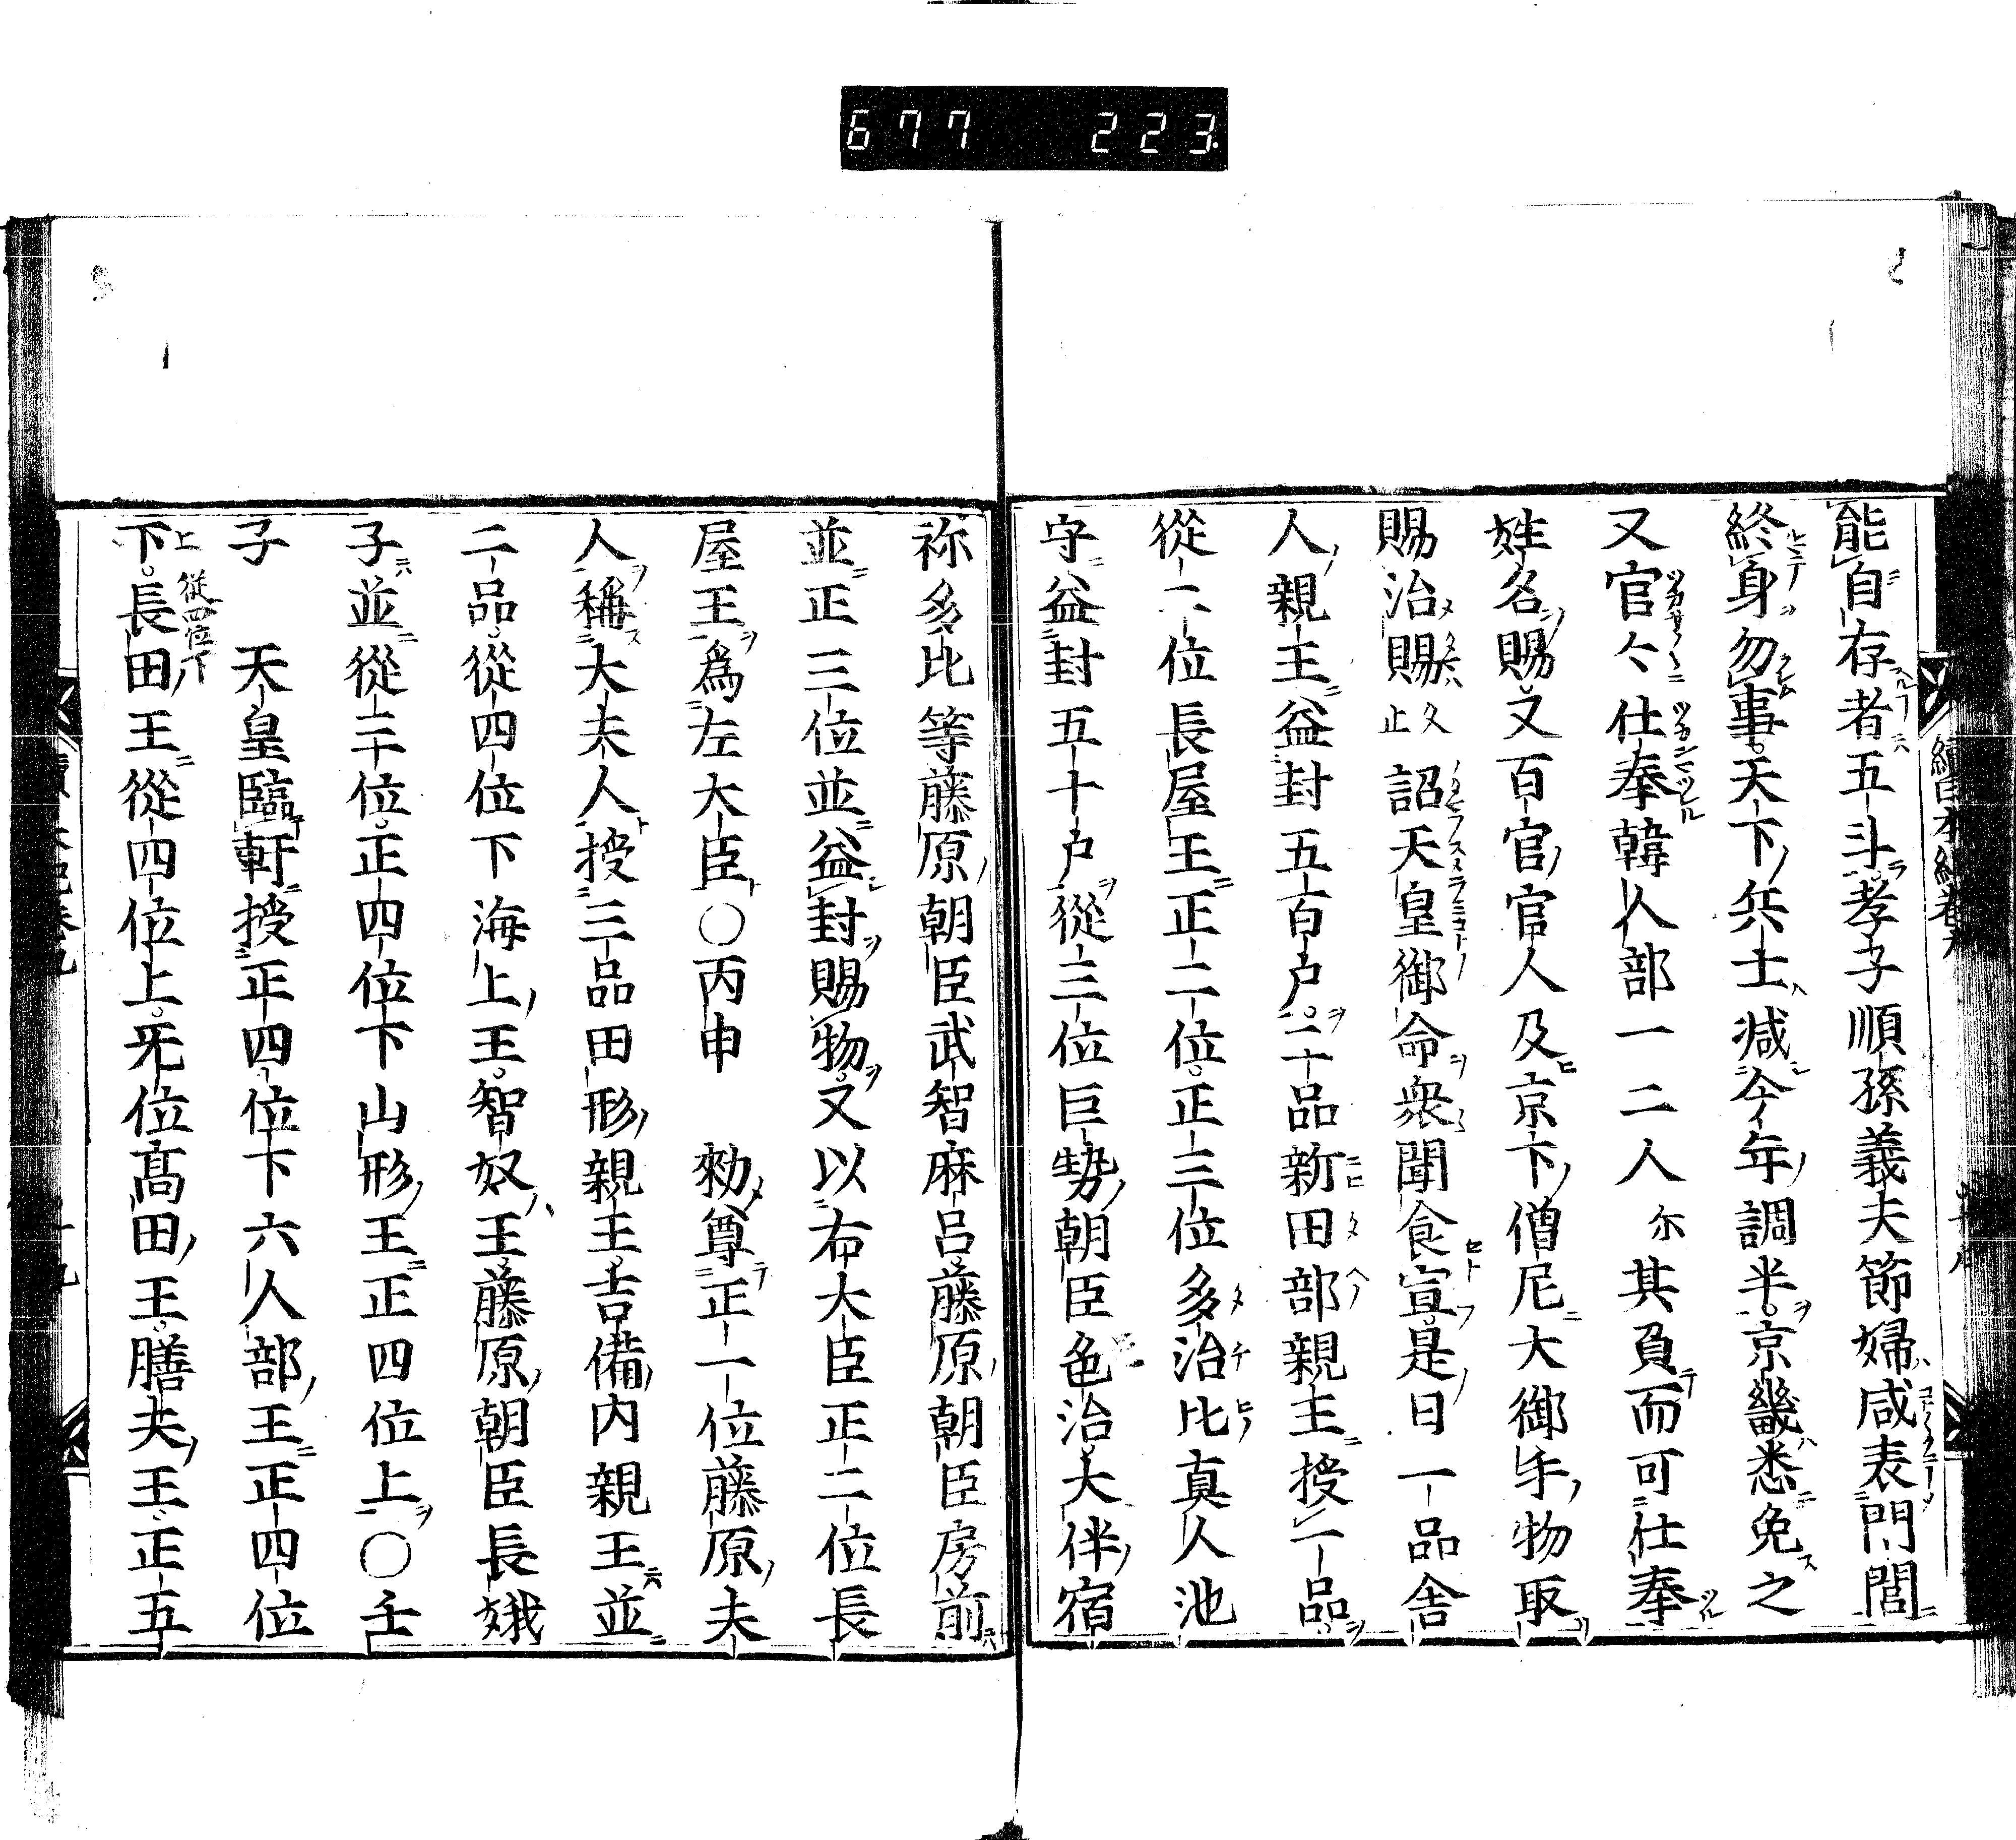 677 223.
能自存者五斗孝子順孫義夫節婦咸表門閭
終身勿事天下兵士減今年調半京畿悉免之
又官々仕奉韓人部一二人尓其負而可仕奉
姓名賜又百官官人及京下僧尼大御手物取
賜治賜久止詔天皇御命衆聞食宣是日一品舎
人親王益封五百戸二品新田部親王授一品
從二位長屋王正二位正三位多治比真人池
守益封五十戸從三位巨勢朝臣色治大伴宿
祢多比等藤原朝臣武智麻呂藤原朝臣房前
並正三位並益封賜物又以右大臣正二位長
屋王爲左大臣〇丙申 勅尊正一位藤原夫
人稱大夫人授三品田形親王吉備内親王並
二品從四位下海上王智奴王藤原朝臣長娥
子並從三位正四位下山形王正四位上〇壬
子 天皇臨軒授正四位下六人部王正四位
上從四位下
下長田王從四位上无位髙田王膳夫王正五